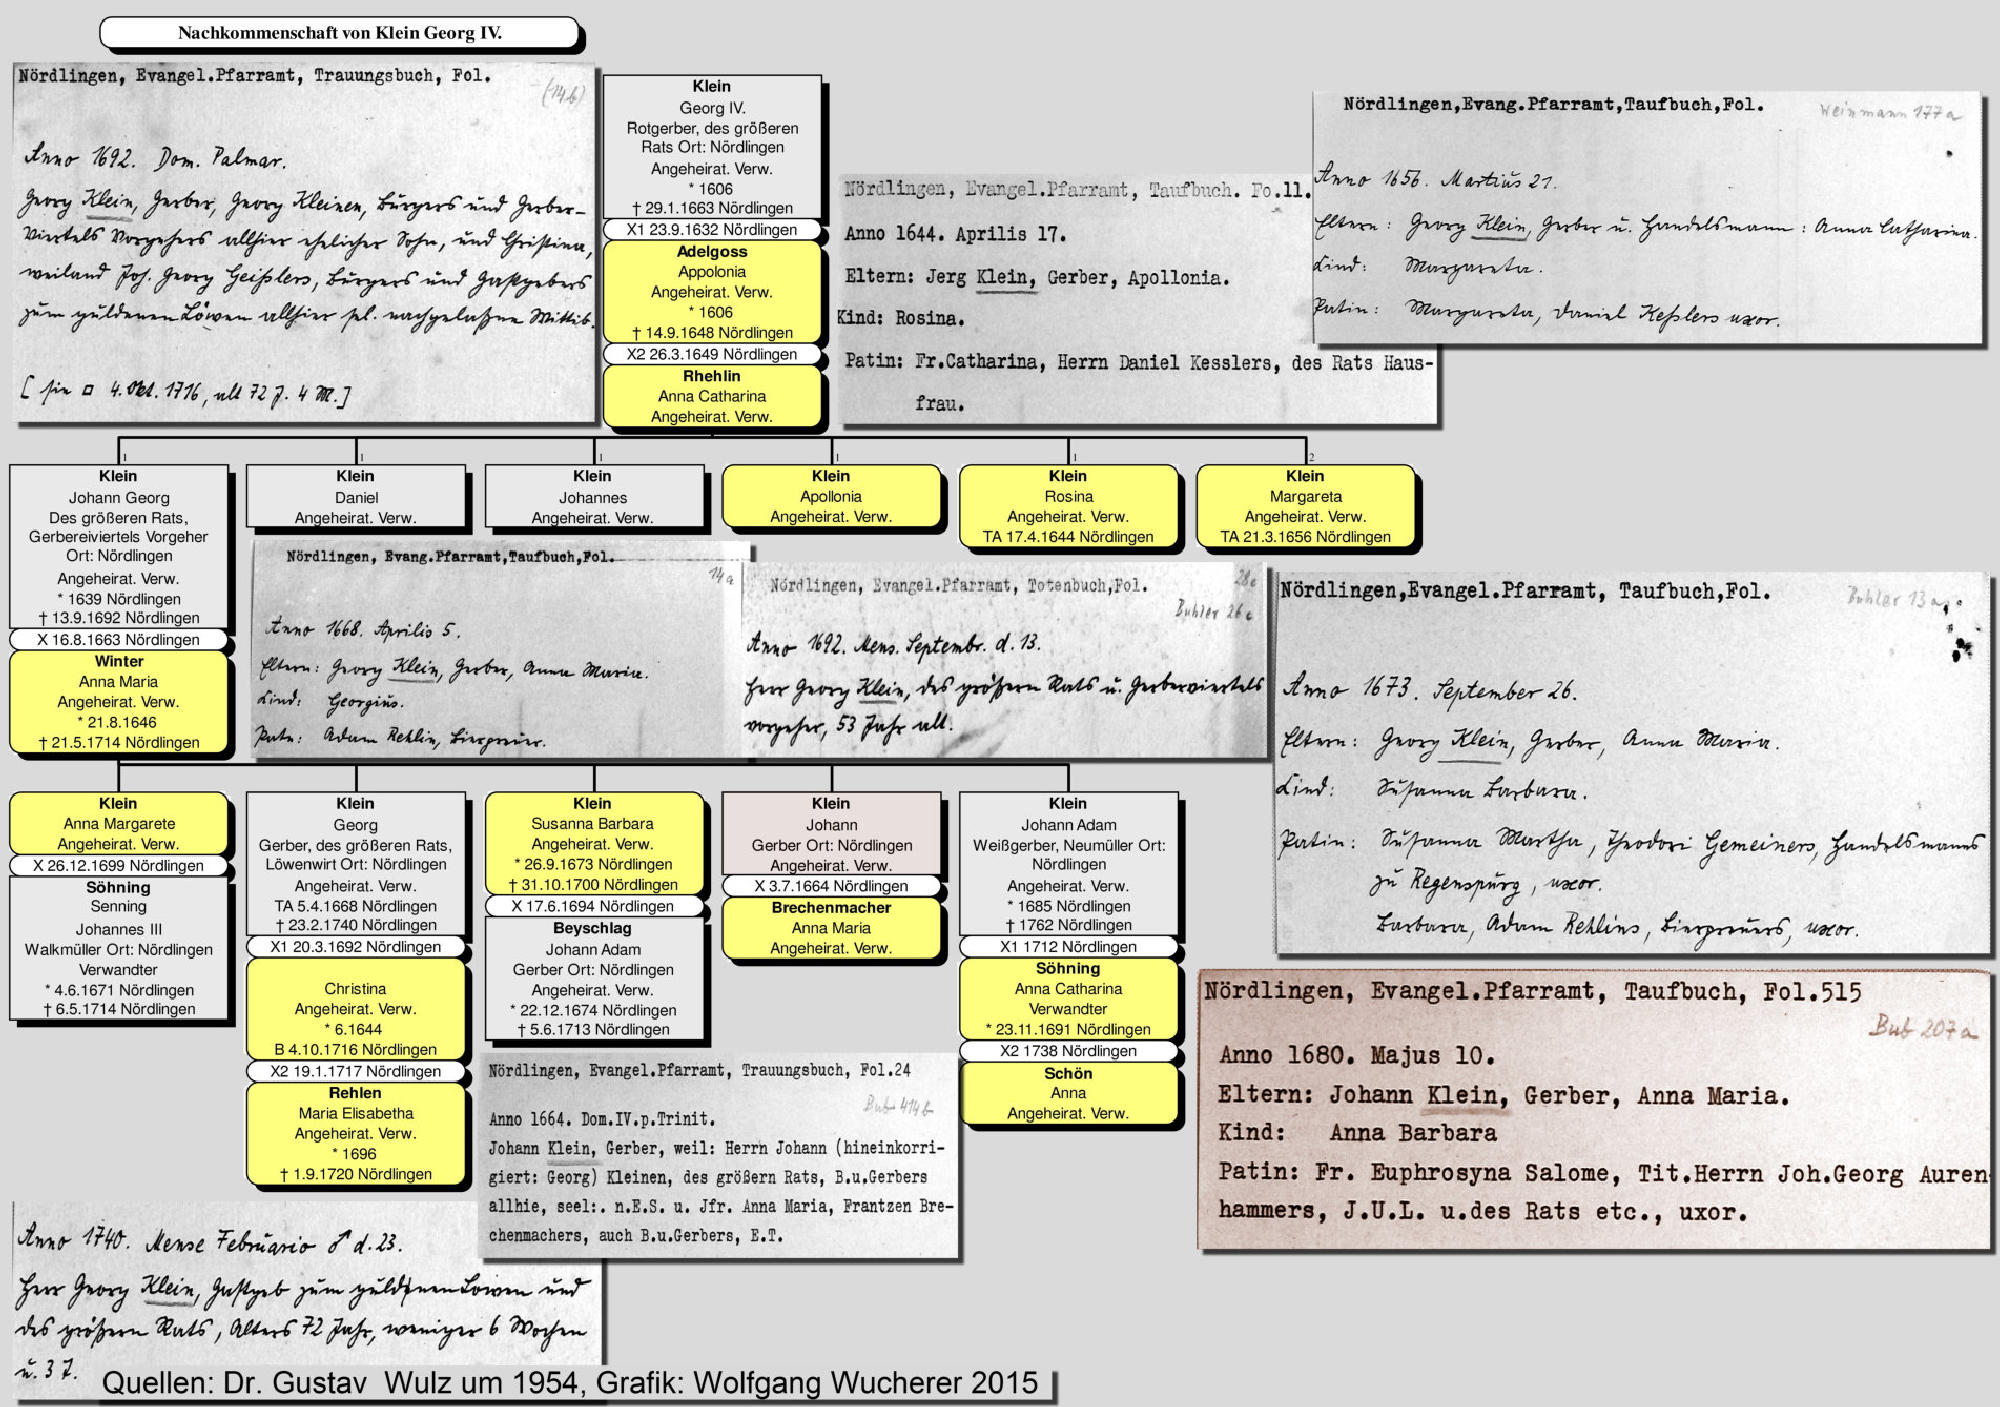 Nachkommenschaft von Klein Georg IV.
Nördlingen, Evangel.Pfarramt, Trauungsbuch, Fol.
(14b)
Anno 1692. Dom. Palmar.
Georg Klein, Gerber, Georg Kleinen, Bürgers und Gerber-
viertels Vorgehers allhier ehelicher Sohn, und Christina,
weiland Joh. Georg Geißlers, Bürgers und Gastgebers
zum güldenen Löwen allhier sel. nachgelaßne Wittib.
[ sie □ 4. Okt. 1716, alt 72 J. 4 M.]
Klein
Georg IV.
Rotgerber, des größeren
Rats Ort: Nördlingen
Angeheirat. Verw.
* 1606
† 29.1.1663 Nördlingen
X1 23.9.1632 Nördlingen
Adelgoss
Appolonia
Angeheirat. Verw.
* 1606
† 14.9.1648 Nördlingen
X2 26.3.1649 Nördlingen
Rhehlin
Anna Catharina
Angeheirat. Verw.
Nördlingen, Evangel.Pfarramt, Taufbuch. Fo.11.
Anno 1644. Aprilis 17.
Eltern: Jerg Klein, Gerber, Apollonia.
Kind: Rosina.
Patin: Fr.Catharina, Herrn Daniel Kesslers, des Rats Haus-
frau.
Nördlingen,Evang.Pfarramt,Taufbuch,Fol.
Weinmann 177a
Anno 1656. Martius 21.
Eltern: Georg Klein, Gerber u. Handelsmann: Anna Catharina.
Kind: Margareta.
Patin: Margareta, Daniel Keßlers uxor.
1
1
1
1
1
2
Klein
Johann Georg
Des größeren Rats,
Gerbereiviertels Vorgeher
Ort: Nördlingen
Angeheirat. Verw.
* 1639 Nördlingen
† 13.9.1692 Nördlingen
X 16.8.1663 Nördlingen
Winter
Anna Maria
Angeheirat. Verw.
* 21.8.1646
† 21.5.1714 Nördlingen
Klein
Daniel
Angeheirat. Verw.
Klein
Johannes
Angeheirat. Verw.
Klein
Apollonia
Angeheirat. Verw.
Klein
Rosina
Angeheirat. Verw.
TA 17.4.1644 Nördlingen
Klein
Margareta
Angeheirat. Verw.
TA 21.3.1656 Nördlingen
Nördlingen, Evang.Pfarramt,Taufbuch,Fol.
14a
Anno 1668. Aprilis 5.
Eltern: Georg Klein, Gerber, Anna Maria.
Kind: Georgius.
Pate: Adam Rehlin, Bierpreuer.
Nördlingen, Evangel.Pfarramt, Totenbuch,Fol.
28c
Buhler 26c
Anno 1692. Mens. Septembr. d. 13.
Herr Georg Klein, des größern Rats u. Gerberviertels
vorgeher, 53 Jahr alt.
Nördlingen,Evangel.Pfarramt, Taufbuch,Fol.
Buhler 13a
Anno 1673. September 26.
Eltern: Georg Klein, Gerber, Anna Maria.
Kind: Susanna Barbara.
Patin: Susanna Martha, Theodori Gemeiners, Handelsmanns
zu Regenspurg, uxor.
Barbara, Adam Rehlins, Bierpreuers, uxor.
Klein
Anna Margarete
Angeheirat. Verw.
X 26.12.1699 Nördlingen
Söhning
Senning
Johannes III
Walkmüller Ort: Nördlingen
Verwandter
* 4.6.1671 Nördlingen
† 6.5.1714 Nördlingen
Klein
Georg
Gerber, des größeren Rats,
Löwenwirt Ort: Nördlingen
Angeheirat. Verw.
TA 5.4.1668 Nördlingen
† 23.2.1740 Nördlingen
X1 20.3.1692 Nördlingen
Christina
Angeheirat. Verw.
* 6.1644
B 4.10.1716 Nördlingen
X2 19.1.1717 Nördlingen
Rehlen
Maria Elisabetha
Angeheirat. Verw.
* 1696
† 1.9.1720 Nördlingen
Klein
Susanna Barbara
Angeheirat. Verw.
* 26.9.1673 Nördlingen
† 31.10.1700 Nördlingen
X 17.6.1694 Nördlingen
Beyschlag
Johann Adam
Gerber Ort: Nördlingen
Angeheirat. Verw.
* 22.12.1674 Nördlingen
† 5.6.1713 Nördlingen
Klein
Johann
Gerber Ort: Nördlingen
Angeheirat. Verw.
X 3.7.1664 Nördlingen
Brechenmacher
Anna Maria
Angeheirat. Verw.
Klein
Johann Adam
Weißgerber, Neumüller Ort:
Nördlingen
Angeheirat. Verw.
* 1685 Nördlingen
† 1762 Nördlingen
X1 1712 Nördlingen
Söhning
Anna Catharina
Verwandter
* 23.11.1691 Nördlingen
X2 1738 Nördlingen
Schön
Anna
Angeheirat. Verw.
Nördlingen, Evangel.Pfarramt, Trauungsbuch, Fol.24
Bub 414b
Anno 1664. Dom.IV.p.Trinit.
Johann Klein, Gerber, weil: Herrn Johann (hineinkorri-
giert: Georg) Kleinen, des größern Rats, B.u.Gerbers
allhie, seel:. n.E.S. u. Jfr. Anna Maria, Frantzen Bre-
chenmachers, auch B.u.Gerbers, E.T.
Nördlingen, Evangel.Pfarramt, Taufbuch, Fol.515
Bub 207a
Anno 1680. Majus 10.
Eltern: Johann Klein, Gerber, Anna Maria.
Kind: Anna Barbara
Patin: Fr. Euphrosyna Salome, Tit.Herrn Joh.Georg Auren-
hammers, J.U.L. u.des Rats etc., uxor.
Anno 1740. Mense Februario ♂ d. 23.
Herr Georg Klein, Gastgeb zum güldenen Löwen und
des größern Rats, Alters 72 Jahr, weniger 6 Wochen
u. 3 T.
Quellen: Dr. Gustav Wulz um 1954, Grafik: Wolfgang Wucherer 2015